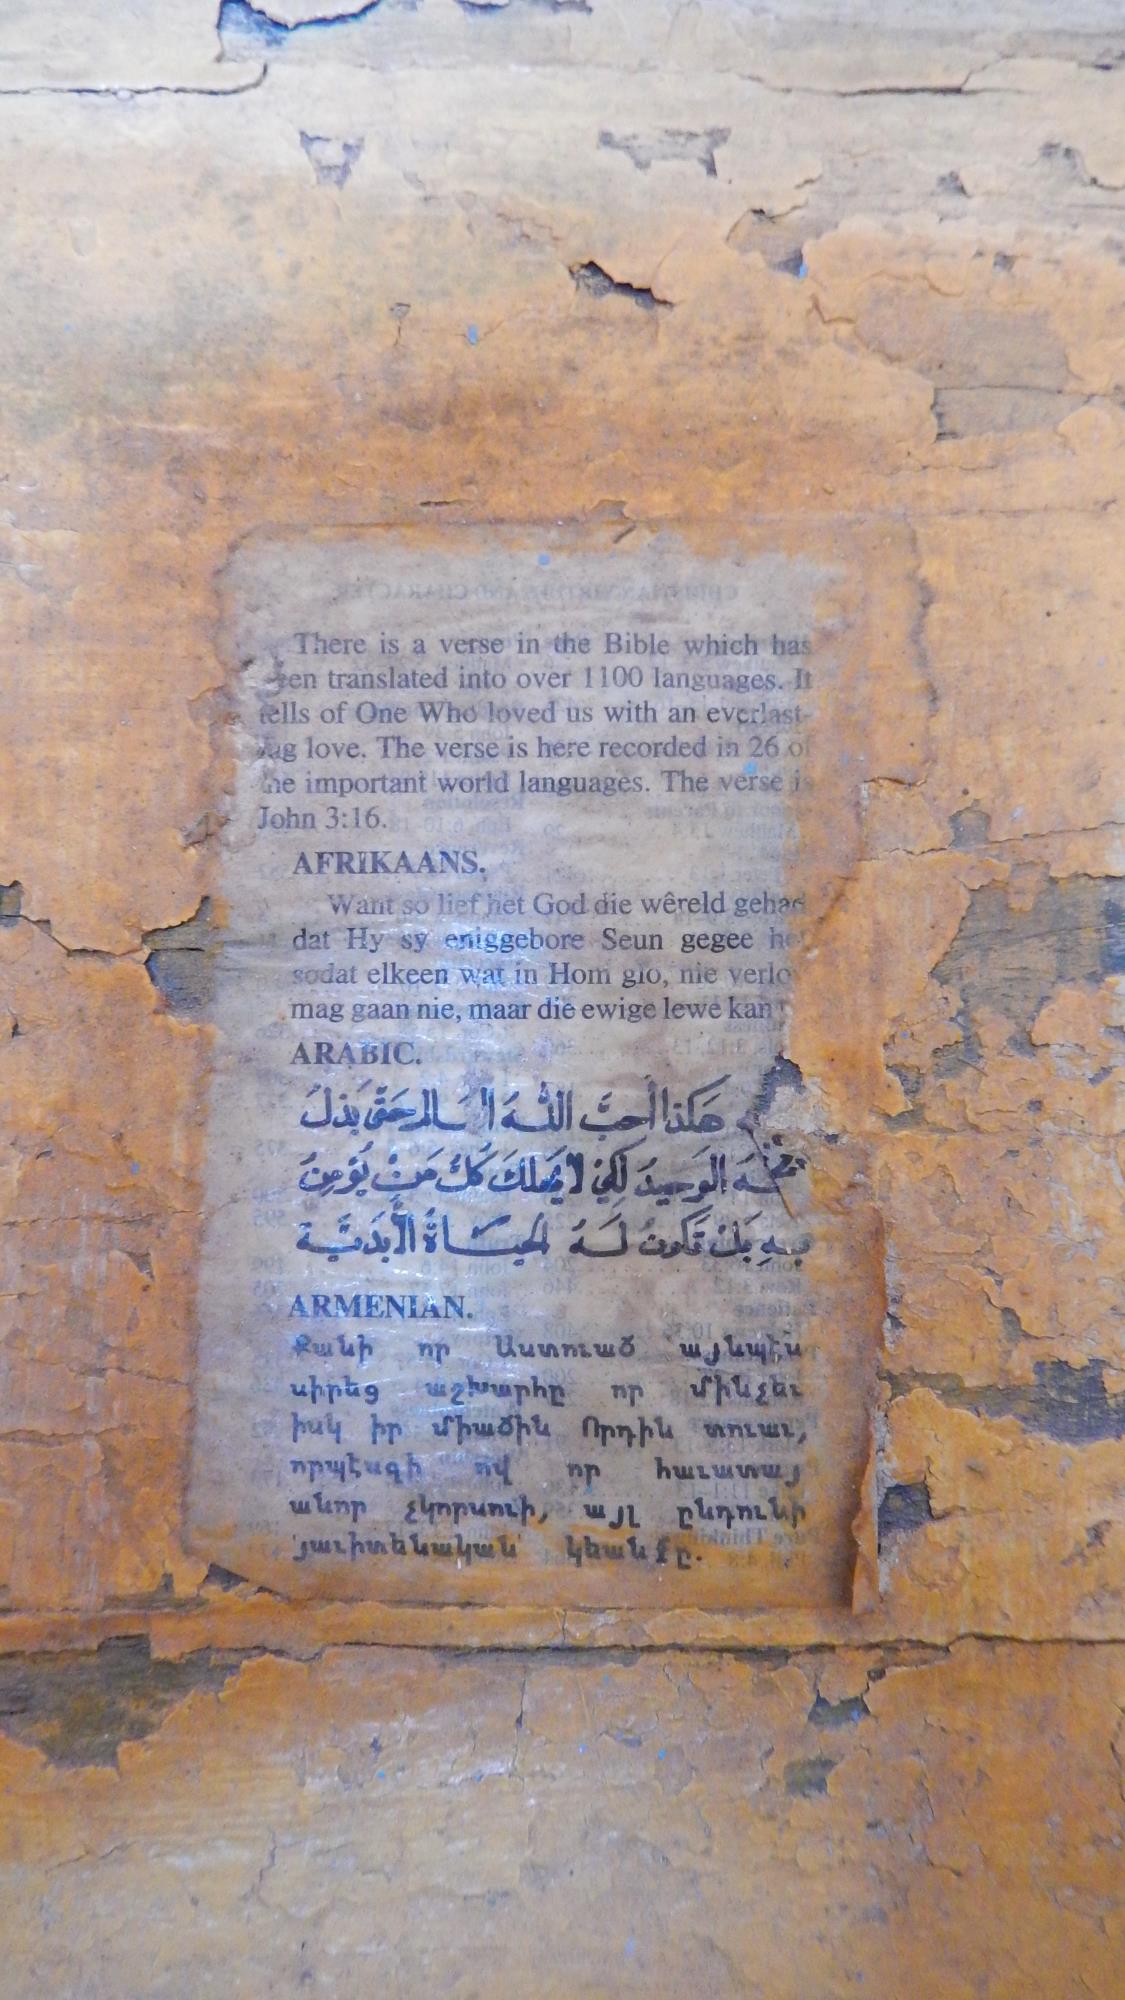 There is a verse in the Bible which has
een translated into over 1100 languages. It
tells of One Who loved us with an everlast-
ing love. The verse is here recorded in 26 of
he important world languages. The verse is
John 3:16.
AFRIKAANS.
Want so lief het God die wêreld gehad
dat Hy sy eniggebore Seun gegee he
sodat elkeen wat in Hom glo, nie verlo
mag gaan nie, maar die ewige lewe kan
ARABIC.
هَكَذَا أَحَبَّ اللهُ حَتَّى بَذَلَ
الوَحِيدَ لِكَيْ لاَ يَهْلِكَ كُلُّ مَنْ يُؤْمِنُ
بَلْ تَكُونُ لَهُ الحَيَاةُ الأَبَدِيَّةُ
ARMENIAN.
Քանի որ Աստուած այնպէս
սիրեց աշխարհը որ մինչեւ
իսկ իր միածին Որդին տուաւ,
որպէսզի ով որ հաւատայ
անոր չկորսուի, այլ ընդունի
յաւիտենական կեանքը.